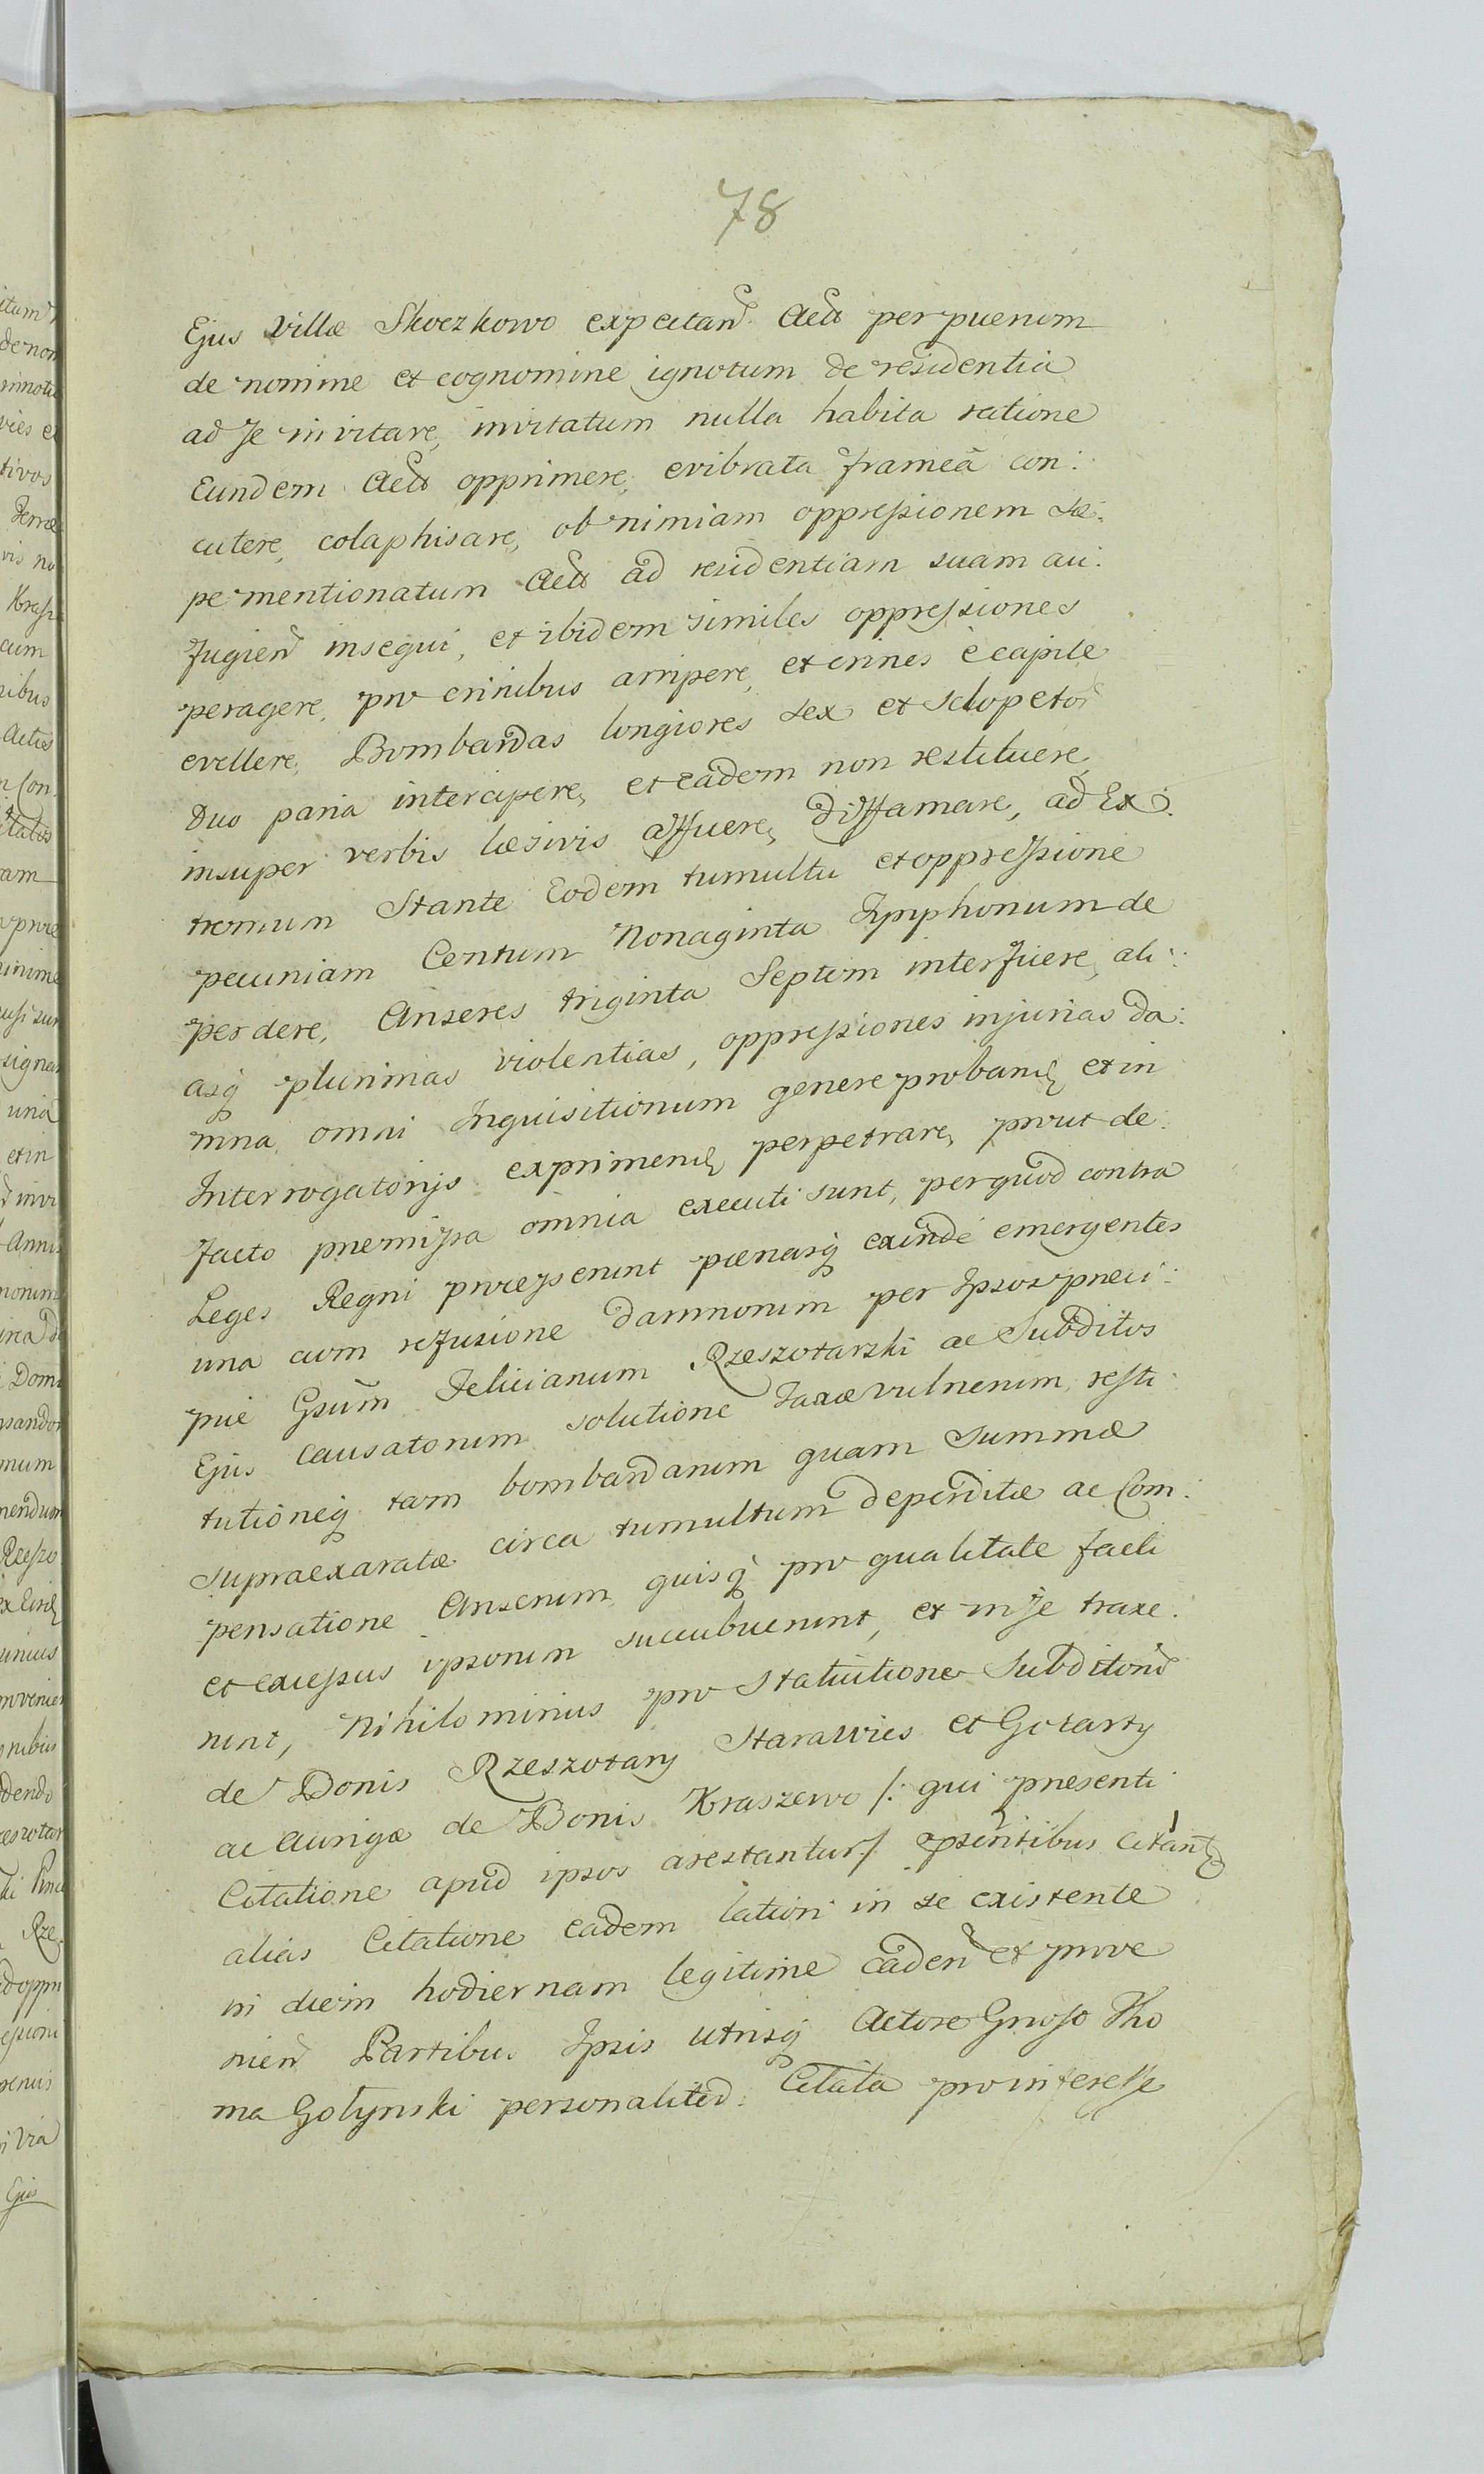 78
Ejus Villæ Skoczkowo expectand. Actt per puerum
de nomine et cognomine ignotum de residentia
ad se invitare, invitatum nulla habita ratione
Eundem Actt opprimere, evibrata frameâ con:
cutere, colaphisare, ob nimiam oppressionem Sæ:
pe mentionatum Actt ad residentiam suam au:
fugiend insequi, et ibidem similes oppressiones
peragere, pro crinibus arripere, et crines è capite
evellere, Bombardas longiores Sex et Sclopetor
Duo paria intercipere, et eadem non restituere
insuper verbis læsivis afficere, diffamare, ad Ex:
tremum Stante Eodem tumultu et oppressione
pecuniam Centum Nonaginta Tymphonum de
perdere, Anseres triginta Septem interficere, ali:
asq plurimas violentias, oppressiones injurias da:
mna omni Inquisitionum genere proband et in
Interrogatorijs exprimend perpetrare, prout de:
facto præmissa omnia executi sunt, per quod contra
Leges Regni processerunt pænasq exindè emergentes
una cum refusione damnorum per Ipsos præci:
pue Gsum Felicianum Rzeszotarski ac Subditos
Ejus causatorum solutione Taxæ vulnerum, resti
tutioneq tam bombardarum quam Summæ
supraexaratæ circa tumultum deperditæ ac Com:
pensatione Anserum, quisq pro qualitate facti
et excessus ipsorum succubuerunt, et in se traxe:
runt, Nihilominus pro Statuitione Subditorũ
de Bonis Rzeszotary Starawies et Gozarty
ac Aurigæ de Bonis Kraszewo /: qui præsenti
Citatione apud ipsos arestantur/ psentibus Citant
alias Citatione eadem latiori in se existente
in diem hodiernam legitime caden et prove
nien Partibus Ipsis utrisq Actore Gnoso Tho
ma Gołynski personaliter. Citata pro interesse